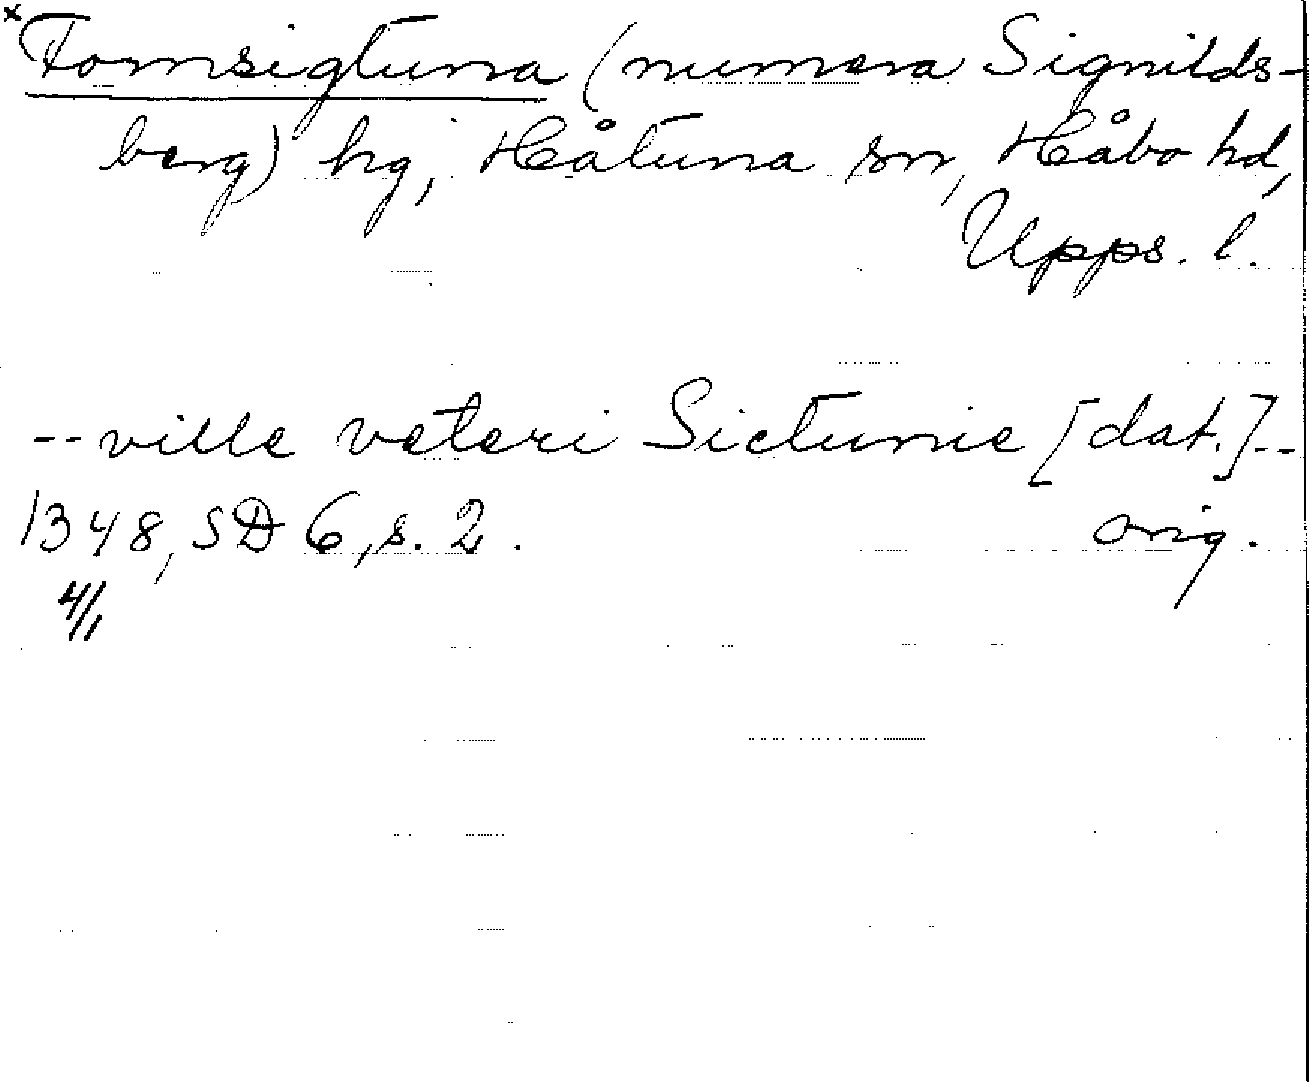 ×Fornsigtuna (numera Signilds-
berg) hg, Håtuna sn, Håbo hd,
Upps. l.
--ville veteri Sictunie [dat.]--
1348, SD 6, s. 2. orig.
4/1